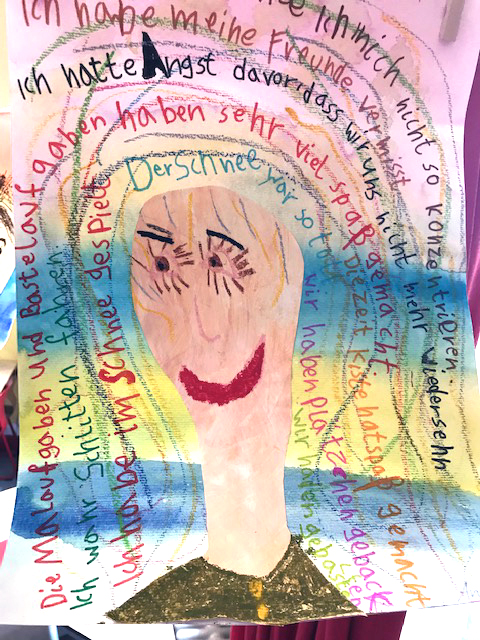 Ich mich nicht so konzentrieren.
Ich habe meine Freunde vermisst
Ich hatte Angst davor, dass wir uns nicht mehr wiedersehn
Die Malaufgaben und Bastelaufgaben haben sehr viel spaß gemacht
Ich wahr Schlitten fahren.
Ich habe im Schnee gespielt
Der Schnee war so toll
Die zeit kiste hat spaß gemacht
wir haben plätzchen geback
wir haben